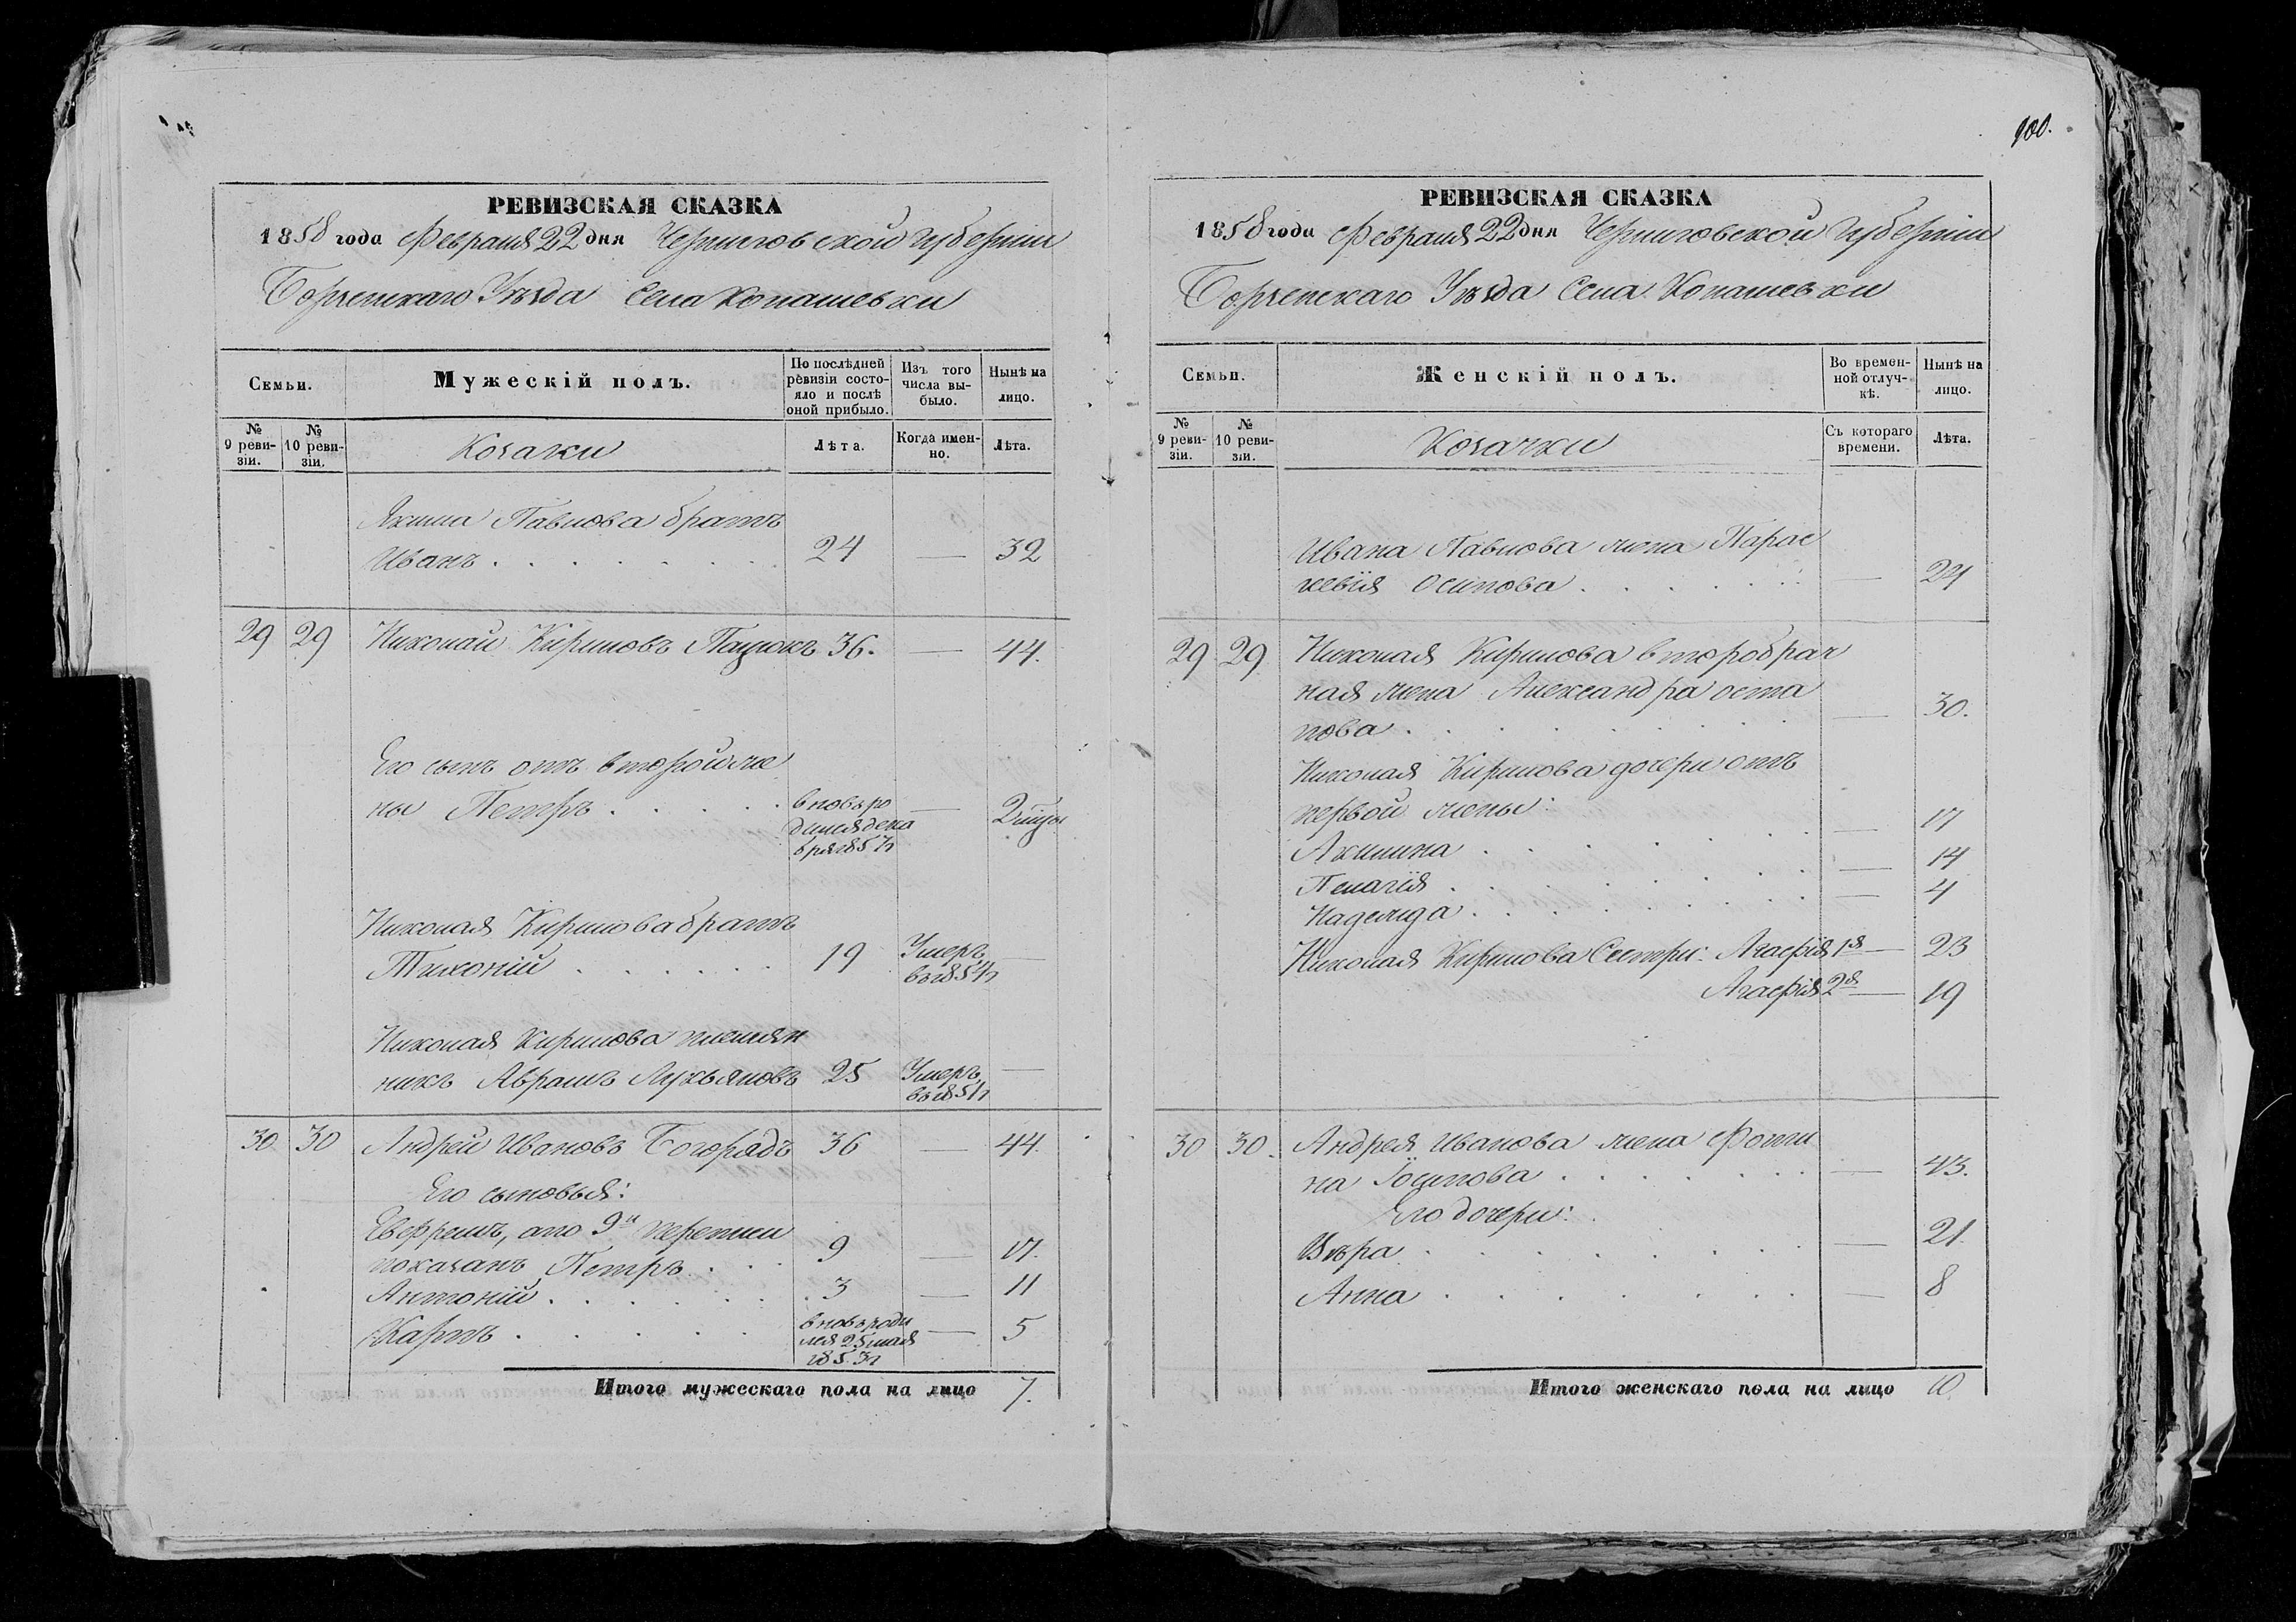 РЕВИЗСКАЯ СКАЗКА
1858 года Февраля 22 дня Черниговской Губернии
Борзенскаго Уѣзда Села Копашевки
Семьи.
Мужескій полъ.
По послѣдней ревизіи состояло и послѣ оной прибыло.
Изъ того числа выбыло.
Нынѣ на лицо.
№ 9 ревизіи.
№ 10 ревизіи.
Козаки
Лѣта.
Когда именно.
Лѣта.
Якима Павлова братъ
Иванъ . . . . . . . . 24 — 32
29 29 Николай Кириловъ Пацюкъ 36. — 44.
Его сынъ отъ второй же
ны Петръ . . . . . вновь ро — 2 мцы
дился дека
бря 1857 г
Николая Кирилова братъ
Тихоній . . . . . . 19 Умеръ —
въ 1854 г
Николая Кирилова племян
никъ Абрамъ Лукьяновъ 25 Умеръ —
въ 1851 г
30 30 Андрей Ивановъ Богорадъ 36 — 44.
Его сыновья:
Евфремъ, по 9й переписи
показанъ Петръ . . . 9 — 17.
Антоній . . . . . . 3 — 11
Карпъ . . . . . вновь роди — 5
лся 25 мая
1853 г
Итого мужескаго пола на лицо 7.
100.
РЕВИЗСКАЯ СКАЗКА
1858 года Февраля 22 дня Черниговской Губернии
Борзенскаго Уѣзда Села Копашевки
Семьи.
Женскій полъ.
Во временной отлучкѣ.
Нынѣ на лицо.
№ 9 ревизіи.
№ 10 ревизіи.
Козачки
Съ котораго времени.
Лѣта.
Ивана Павлова жена Парас
кевія Осипова . . . . . . — 24
29 29 Николая Кирилова второбрач
ная жена Александра Оста
пова . . . . . . . — 30.
Николая Кирилова дочери отъ
первой жены:
Акилина . . . . . . — 17
Пелагія . . . . . . . — 14
Надежда . . . . . . . — 4
Николая Кирилова Сестры: Агафія 1я — 23
Агафія 2я — 19
30 30. Андрея Иванова жена Фоти
на Іосипова . . . . . . — 43.
Его дочери:
Вѣра . . . . . . . — 21.
Анна . . . . . . . — 8
Итого женскаго пола на лицо 10